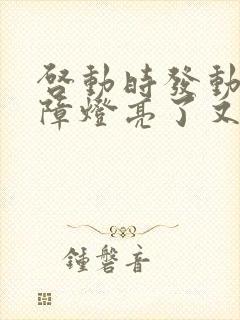 啓動時發動
障燈亮了又
鍾磬音